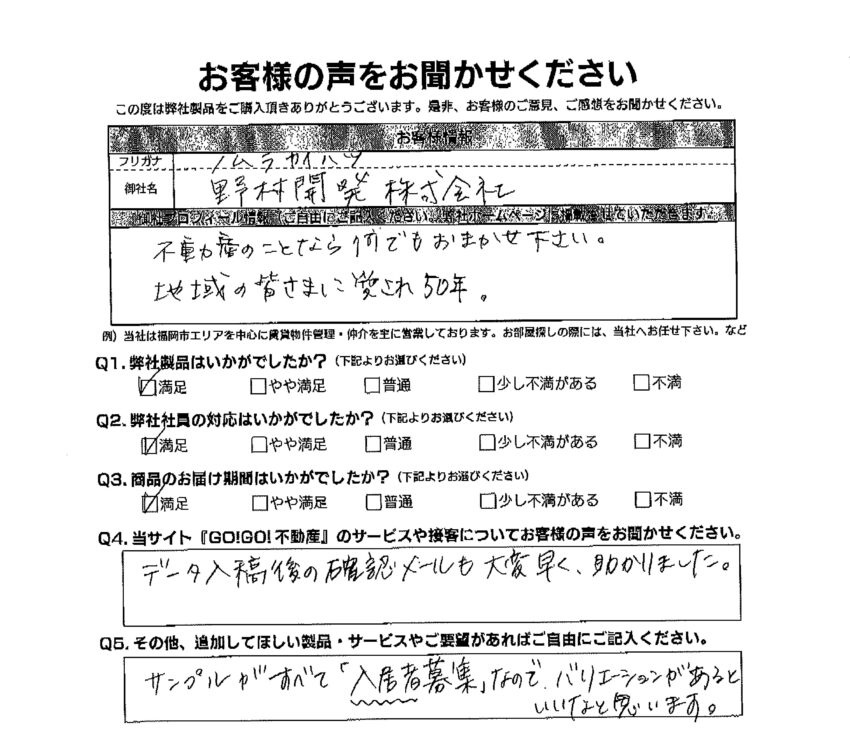 お客様の声をお聞かせください
この度は弊社製品をご購入頂きありがとうございます。是非、お客様のご意見、ご感想をお聞かせください。
お客様情報
フリガナ ノムラカイハツ
御社名 野村開発 株式会社
御社プロフィール情報 ご自由にご記入ください。弊社ホームページに掲載させていただきます。
不動産のことなら何でもおまかせ下さい。
地域の皆さまに愛され50年。
例）当社は福岡市エリアを中心に賃貸物件管理・仲介を主に営業しております。お部屋探しの際には、当社へお任せ下さい。など
Q1.弊社製品はいかがでしたか？（下記よりお選びください）
☑満足 □やや満足 □普通 □少し不満がある □不満
Q2.弊社社員の対応はいかがでしたか？（下記よりお選びください）
☑満足 □やや満足 □普通 □少し不満がある □不満
Q3.商品のお届け期間はいかがでしたか？（下記よりお選びください）
☑満足 □やや満足 □普通 □少し不満がある □不満
Q4.当サイト『GO!GO!不動産』のサービスや接客についてお客様の声をお聞かせください。
データ入稿後の確認メールも大変早く、助かりました。
Q5.その他、追加してほしい製品・サービスやご要望があればご自由にご記入ください。
サンプルがすべて「入居者募集」なので、バリエーションがあると
いいなと思います。